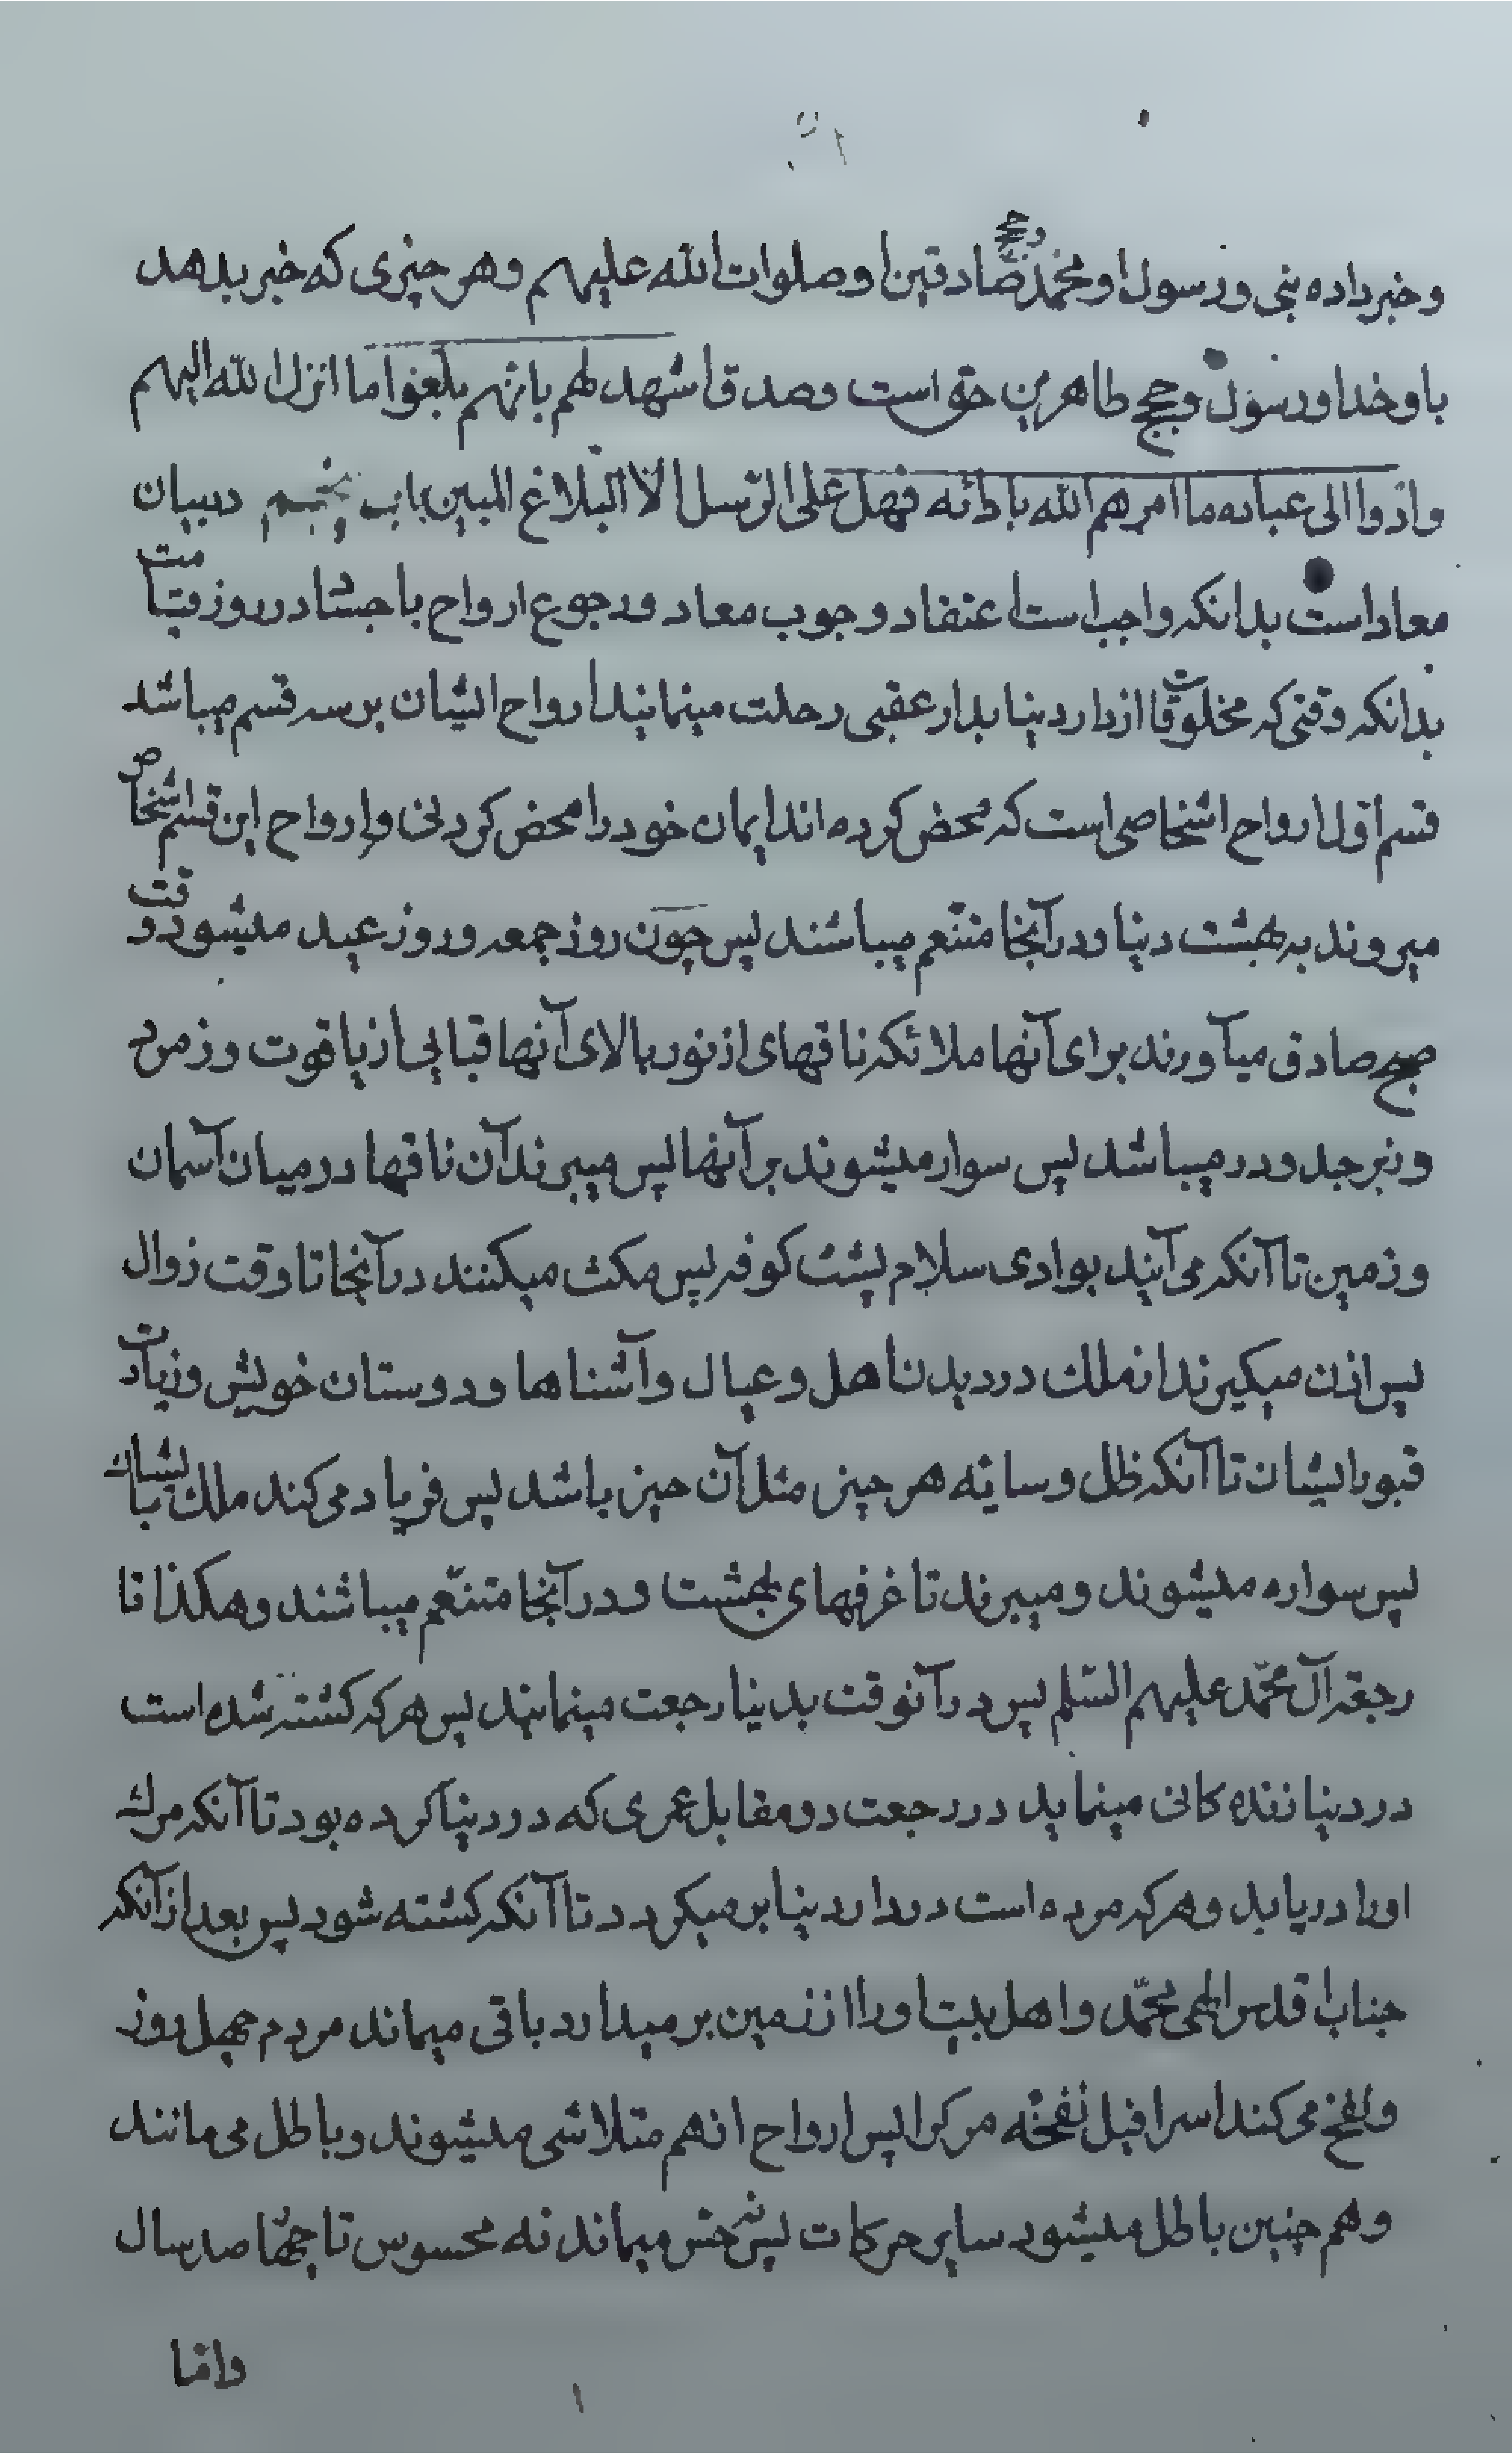 و خبر داده نبی و رسول او محمد و حجج صادقین او صلوات الله علیهم و هر چیزی که خبر بدهد
باو خدا و رسول و حجج طاهرین حق است و صدق اشهد لهم بانهم بلغوا ما انزل الله الیهم
وادوا الی عباده ما امرهم الله بادائه فهل علی الرسل الا البلاغ المبین باب پنجم در بیان
معاد است بدانکه واجب است اعتقاد وجوب معاد و رجوع ارواح باجساد در روز قیامت
بدانکه وقتی که مخلوقات از دار دنیا بدار عقبی رحلت مینمایند ارواح ایشان بر سه قسم میباشد
قسم اول ارواح اشخاصی است که محض کرده اند ایمان خود را محض کردنی و ارواح این قسم اشخاص
میروند به بهشت دنیا و در آنجا متنعم میباشند پس چون روز جمعه و روز عید میشود وقت
صبح صادق میآورند برای آنها ملائکه ناقهای از نور بالای آنها قبابی از یاقوت و زمرد
و زبرجد و در میباشد پس سوار میشوند بر آنها پس میبرند آن ناقها در میان آسمان
و زمین تا آنکه می آیند بوادی سلام پشت کوفه پس مکث میکنند در آنجا تا وقت زوال
پس اذن میگیرند از ملک در دیدن اهل و عیال و آشناها و دوستان خویش و زیارت
قبور ایشان تا آنکه ظل و سایه هر چیزی مثل آن چیز باشد پس فریاد می کند ملک بایشان
پس سواره میشوند و میبرند تا غرفهای بهشت و در آنجا متنعم میباشند و هکذا تا
رجعة آل محمد علیهم السلم پس در آنوقت بدنیا رجعت مینمایند پس هر که کشته شده است
در دنیا زنده کانی مینماید در رجعت دو مقابل عمری که در دنیا کرده بود تا آنکه مرک
اورا دریابد و هر که مرده است در دار دنیا بر میکردد تا آنکه کشته شود پس بعد از آنکه
جناب اقدس الهی محمد و اهل بیت اورا از زمین بر میدارد باقی میماند مردم چهل روز
و نفخ می کند اسرافیل نفخه مرکرا پس ارواح انهم متلاشی میشوند و باطل می مانند
و هم چنین باطل میشود سایر حرکات پس نه حس میماند نه محسوس تا چهار صد سال
واما